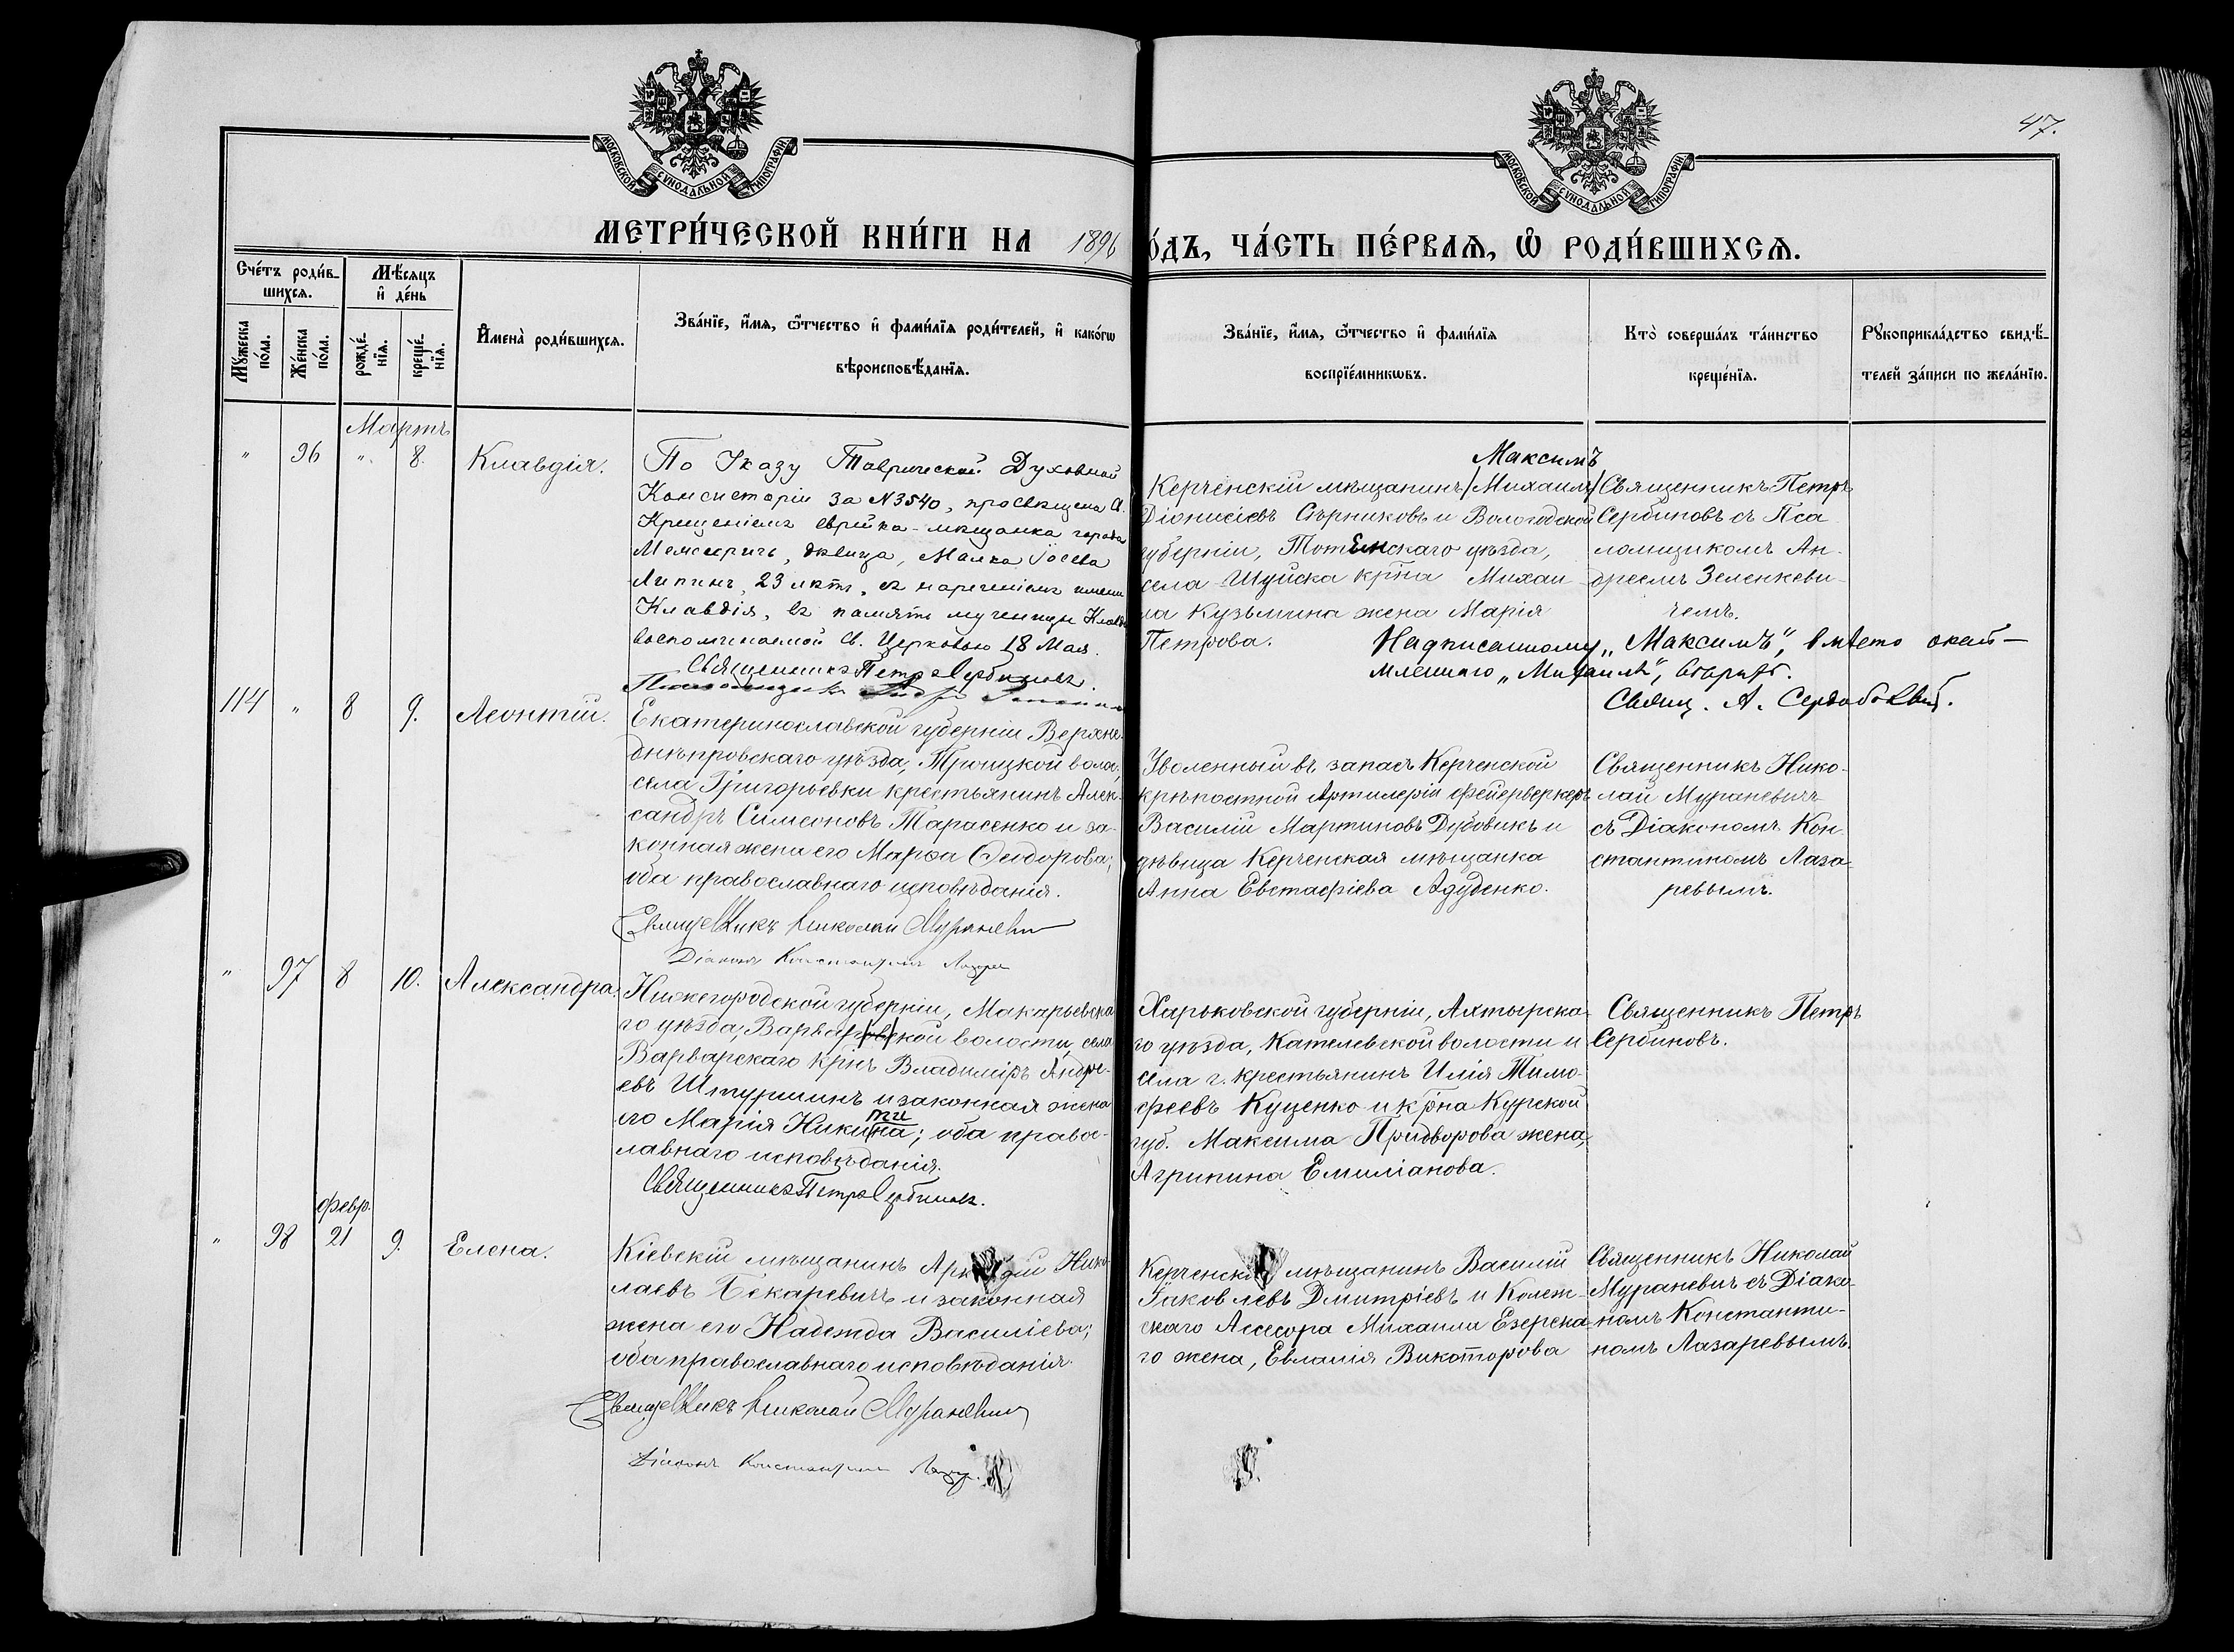 47.
МОСКОВСКОЙ СѴНОДАЛЬНОЙ ТИПОГРАФІИ
МОСКОВСКОЙ СѴНОДАЛЬНОЙ ТИПОГРАФІИ
МЕТРИ́ЧЕСКОЙ КНИ́ГИ НА 1896
О́ДЪ, ЧА́СТЬ ПЕ́РВАЯ, Ѡ РОДИ́ВШИХСЯ.
Сче́тъ роди́в-
шихся.
Мѣ́сяцъ
и де́нь
Мꙋ́жеска
по́ла.
Же́нска
по́ла.
рожде́-
нїя.
креще́-
нїя.
Имена̀ роди́вшихся.
Зва́нїе, и́мя, ѻ́тчество и фами́лїя роди́телей, и како́гѡ
вѣроисповѣ́данїя.
Зва́нїе, и́мя, ѻ́тчество и фами́лїя
воспрїе́мникѡвъ.
Кто̀ соверша́лъ та́инство
креще́нїя.
Рꙋкоприкла́дство свидѣ́-
телей за́писи по жела́нїю.
Мартъ
" 96 " 8. Клавдія.
По Указу Таврической Духовной
Консисторіи за №3540, просвѣщена С.
Крещеніемъ еврейка-мѣщанка города
Межеричъ, дѣвица, Малка Іосева
Липинъ, 23 лѣтъ, съ нареченіемъ имени
Клавдія, въ память мученицы Клавд
воспоминаемой Св. Церковью 18 Мая.
Священникъ Петръ Сербиновъ.
Максимъ
Керченскій мѣщанинъ /Михаилъ/
Діонисіевъ Сѣрниковъ и Вологодской
губерніи, Тотемскаго уѣзда,
села Шуйска кр̃на Михаи-
ла Кузьмина жена Марія
Петрова.
Священникъ Петръ
Сербиновъ съ Пса
ломщикомъ Ан-
дреемъ Зеленкеви-
чемъ.
Надписанному „Максимъ“, вмѣсто окай-
мленнаго „Михаилъ“, вѣрить.
Свящ. А. Сердобольскій.
114 " 8 9. Леонтій.
Екатеринославской губерніи Верхне-
днѣпровскаго уѣзда, Троицкой воло.,
села Григорьевки крестьянинъ Алек-
сандръ Симеоновъ Тарасенко и за-
конная жена его Марѳа Ѳеодорова;
оба православнаго исповѣданія.
Священникъ Николай Мураневичъ
Діаконъ Константинъ Лазарев
Уволенный въ запасъ Керченской
крѣпостной Артилеріи фейерверкеръ
Василій Мартиновъ Дубовикъ и
дѣвица Керченская мѣщанка
Анна Евстафіева Адуденко.
Священникъ Нико-
лай Мураневичъ
съ Діакономъ Кон-
стантиномъ Лаза-
ревымъ.
" 97 8 10. Александра.
Нижегородской губерніи, Макарьевска
го уѣзда, Варварской волости, села
Варварскаго кр̃нъ Владиміръ Андре-
евъ Штурминъ и законная жена
его Марія Никитина; оба правос-
лавнаго исповѣданія.
Священникъ Петръ Сербиновъ.
Харьковской губерніи, Ахтырска-
го уѣзда, Кателевской волости и
села г. крестьянинъ Илія Тимо-
феевъ Куценко и кр̃на Курской
губ. Максима Придворова жена,
Агрипина Емиліанова.
Священникъ Петръ
Сербиновъ.
февр.
" 98 21 9. Елена.
Кіевскій мѣщанинъ Аркадій Нико-
лаевъ Бекаревичъ и законная
жена его Надежда Василіева;
оба православнаго исповѣданія.
Священникъ Николай Мураневичъ
Діаконъ Константинъ
Керченскій мѣщанинъ Василій
Іаковлевъ Дмитріевъ и Колеж-
скаго Ассесора Михаила Езерска-
го жена, Евламія Викторова
Священникъ Николай
Мураневичъ съ Діако-
номъ Константи-
номъ Лазаревымъ.